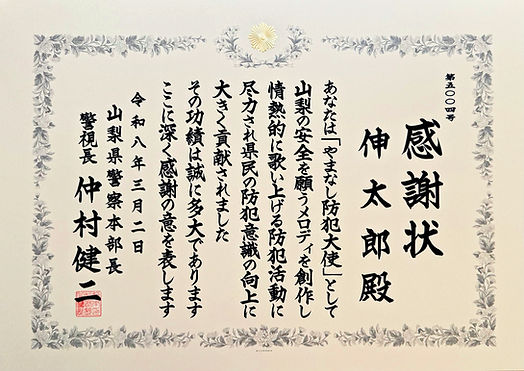 第五〇〇四号
感謝状
伸太郎殿
あなたは「やまなし防犯大使」として
山梨の安全を願うメロディを創作し
情熱的に歌い上げる防犯活動に
尽力され県民の防犯意識の向上に
大きく貢献されました
その功績は誠に多大であります
ここに深く感謝の意を表します
令和八年三月二日
山梨県警察本部長
警視長 仲村健二